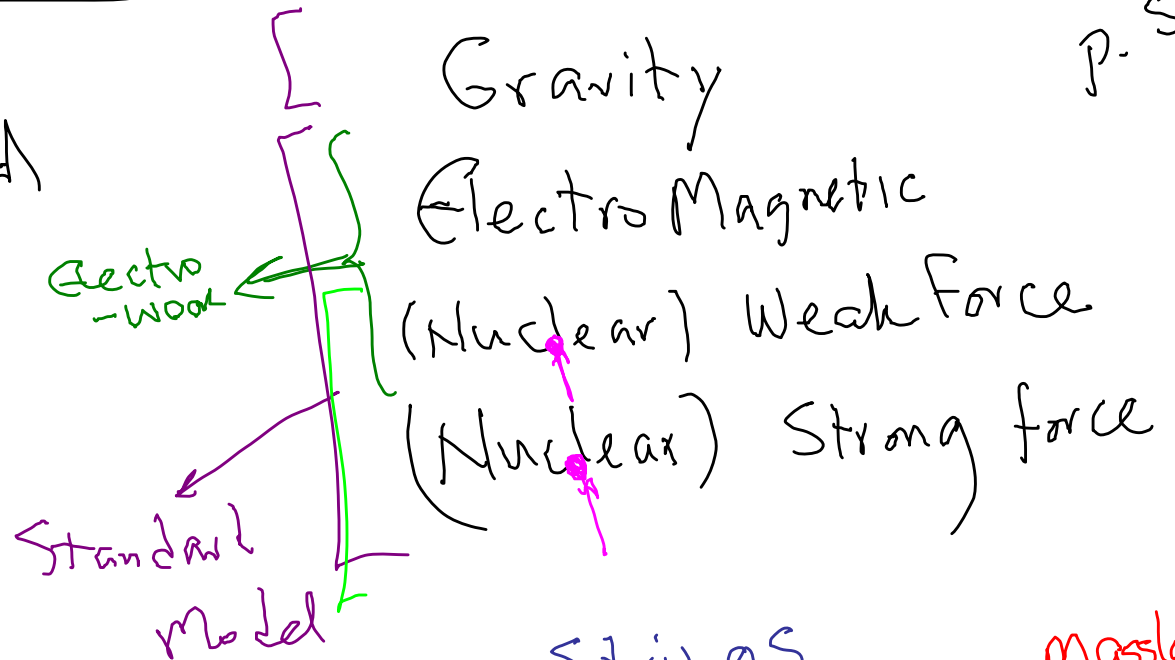 Gravity
P. 5
ElectroMagnetic
Electro
-weak
(Nuclear) Weak Force
(Nuclear) Strong force
Standard
Model
Strings